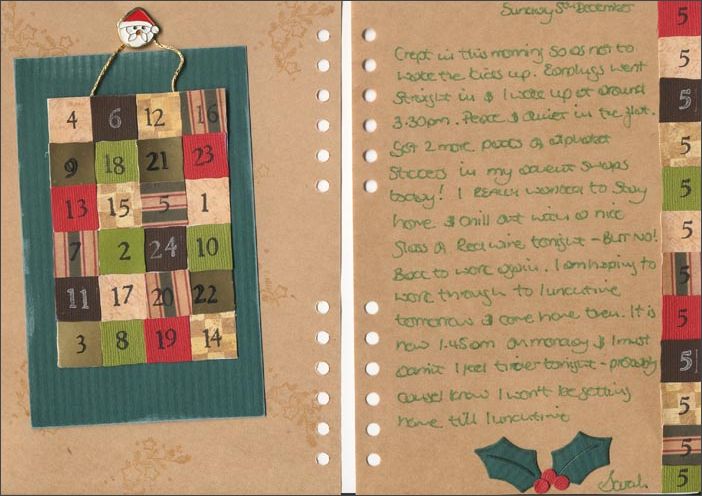 4 6 12 16
9 18 21 23
13 15 5 1
7 2 24 10
11 17 20 22
3 8 19 14
Sunday 5th December
Crept in this morning so as not to
wake the kids up. Earplugs went
straight in & I woke up at around
3.30pm. Peace & quiet in the flat.
Got 2 more packs of alphabet
stickers in my advent swaps
today! I REALLY wanted to stay
home & chill out with a nice
glass of Red wine tonight - BUT NO!
Back to work again. I am hoping to
work through to lunchtime
tomorrow & come home then. It is
now 1.45am on monday & I must
admit I feel tired tonight - probably
cause I know I won't be getting
home till lunchtime
Sarah
5
5
5
5
5
5
5
5
5
5
5
5